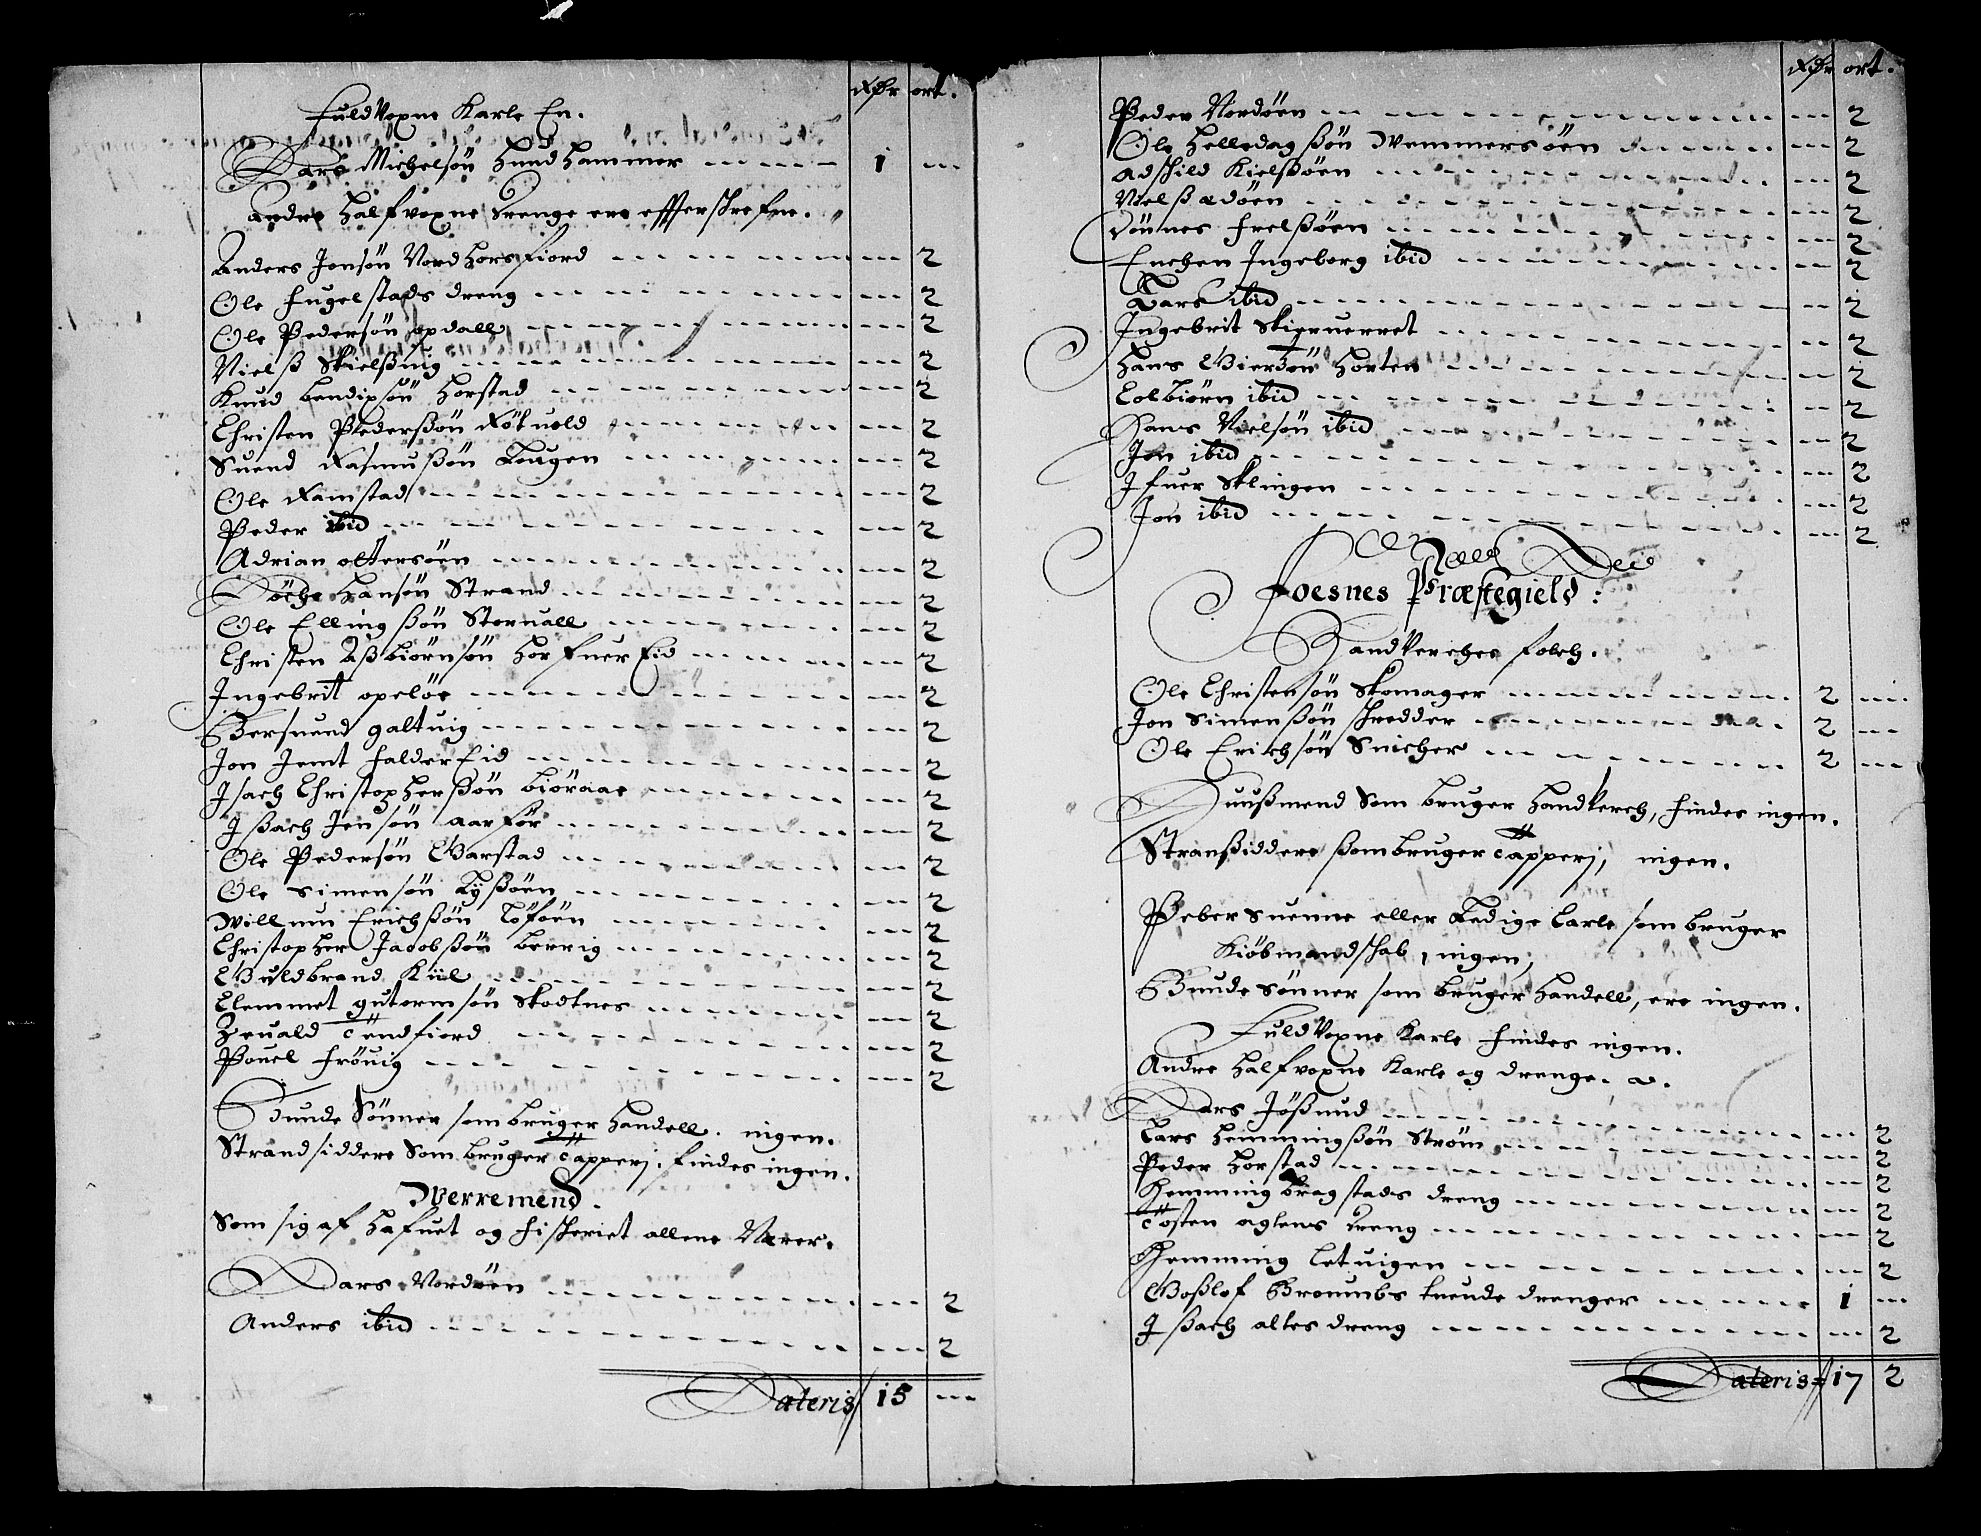 Rdr ort.
Fuldvoxne Karle En.
Lars Michelsøn Hundhammer --- 1 ---
Andre Halfvoxne Drenge ere effterschrefne.
Anders Jonsøn Nordhorsfiord --- 2
Ole Fugelstads dreng --- 2
Ole Pedersøn opdall --- 2
Nielß Skielßuig --- 2
Knud Bendixsøn Horstad --- 2
Christen Pederßøn Røtuold --- 2
Suend Rasmußøn Lougen --- 2
Ole Ramstad --- 2
Peder ibid --- 2
Adrian ottersøen --- 2
Hansøn Strand --- 2
Ole Ellingßøn Storuall --- 2
Christen Aßbiørnsøn Horfuereid --- 2
Ingebrit opeløe --- 2
Bersuend galtuig --- 2
Jon Jemt Faldereid --- 2
Isach Christopherßøn biøraae --- 2
Ißach Jensøn aarfor --- 2
Ole Pedersøn Garstad --- 2
Ole Simensøn Lyßøen --- 2
Willum Erichßøn --- 2
Christopher Jacobßøn berrig --- 2
Guldbrand Kiil --- 2
Clemmet gutormsøn Skodtnes --- 2
Tendfiord --- 2
Pouel Frøuig --- 2
Bunde Sønner som bruger Handell. ingen.
Strandsiddere Som bruger Tapperj. findes ingen.
Werremend.
Som sig af Hafuet og Fischeriet allene Nærer.
Lars Nordøen --- 2
Anders ibid --- 2
Lateris 15 ---
Rdr ort.
Peder Nordøen --- 2
Ole Helledagßøn Wemmersøen --- 2
Adschild Kielßøen --- 2
Nielß --- 2
--- 2
Enchen Ingeborg ibid --- 2
Lars ibid --- 2
Ingebrit Skieruerret --- 2
Hans Horten --- 2
Colbiørn ibid --- 2
Hans Nielsøn ibid --- 2
Jon ibid --- 2
Ifuer Sklingen --- 2
Jon ibid --- 2
Foesnes Præstegield:
Handverches folch.
Ole Christensøn Skomager --- 2 ---
Jon Simenßøn schredder --- 2 ---
Ole Erichsøn Snicher --- 2 ---
Huußmend Som bruger Handverch, findes ingen.
Stranßiddere ßom bruger Tapperj, ingen.
Peber Suenne eller Ledige Carle som bruger
Kiøbmandschab, ingen,
Bunde Sønner som bruger Handell, ere ingen.
Fuldvoxne Karle findes ingen.
Andre Halfvoxne Karle og drenge.
Lars Jøßund --- 2
Lars Hemmingßøn Strøm --- 2
Peder Horstad --- 2
Hemming bragstads dreng --- 2
Tosten aglens dreng --- 2
Hemming Letuigen --- 2
Goßlof Broumbs tuende drenger --- 1 ---
Ißach altes dreng --- 2
Lateris 17 2